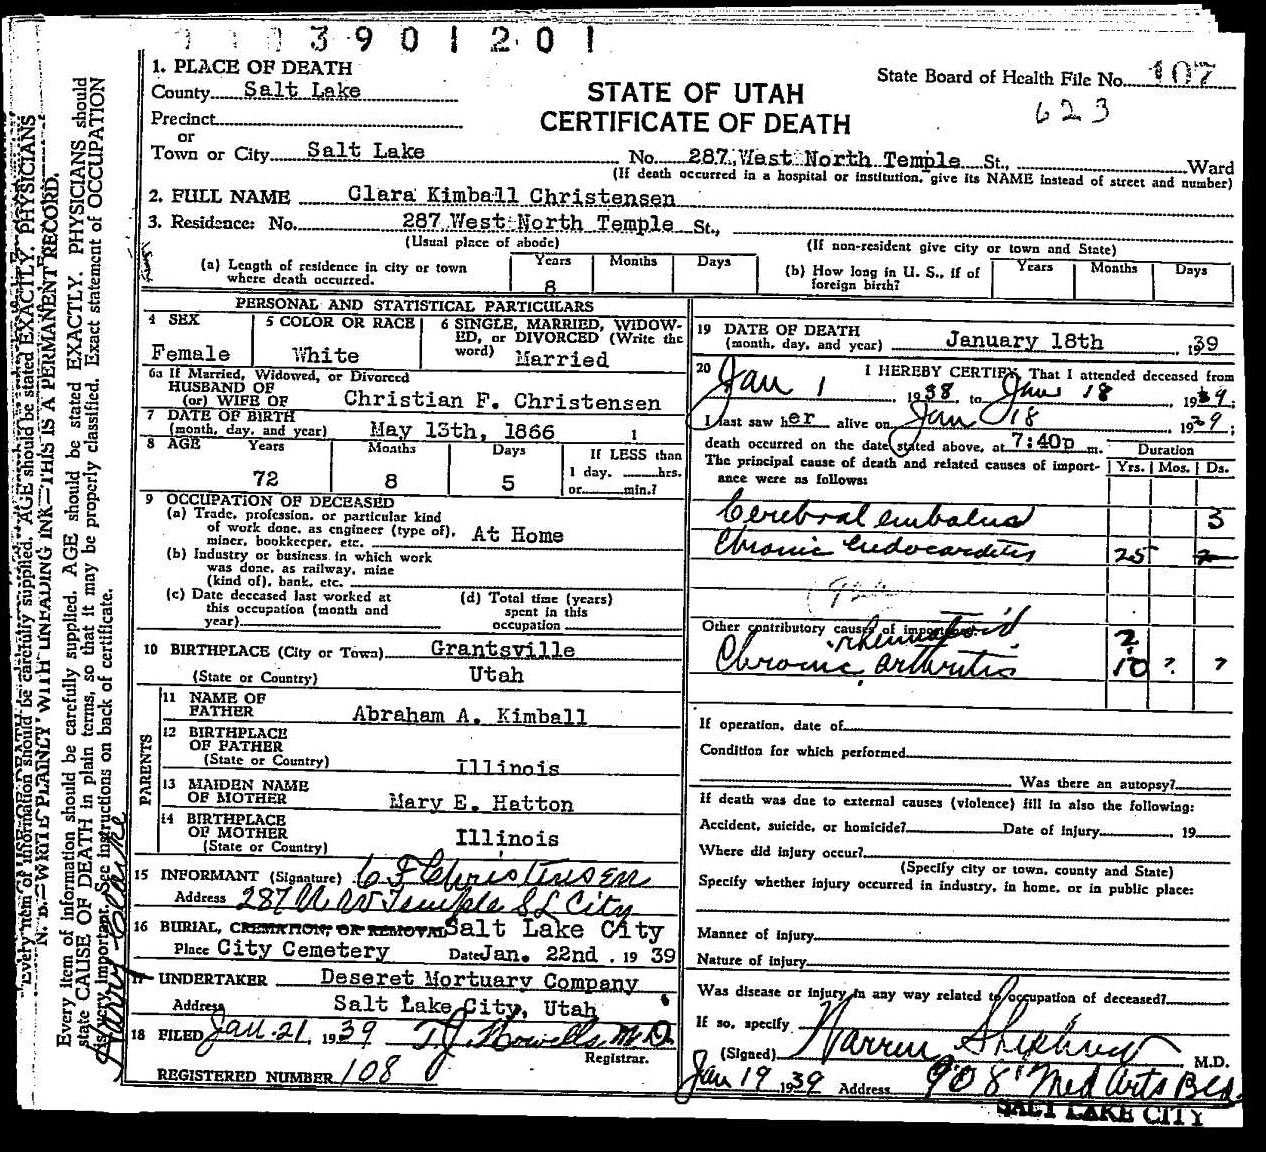 3901201
1. PLACE OF DEATH
State Board of Health File No. 107
County Salt Lake
STATE OF UTAH
623
Precinct
CERTIFICATE OF DEATH
or
Town or City Salt Lake No. 287 West North Temple St., Ward
(If death occurred in a hospital or institution, give its NAME instead of street and number)
2. FULL NAME Clara Kimball Christensen
3. Residence: No. 287 West North Temple St.,
(Usual place of abode) (If non-resident give city or town and State)
(a) Length of residence in city or town where death occurred. Years 8 Months Days (b) How long in U. S., if of foreign birth? Years Months Days
PERSONAL AND STATISTICAL PARTICULARS
4 SEX Female
5 COLOR OR RACE White
6 SINGLE, MARRIED, WIDOW-
ED, or DIVORCED (Write the
word) Married
6a If Married, Widowed, or Divorced
HUSBAND OF
(or) WIFE OF Christian F. Christensen
7 DATE OF BIRTH
(month, day, and year) May 13th, 1866 1
8 AGE Years Months Days If LESS than
72 8 5 1 day, hrs.
or min.?
9 OCCUPATION OF DECEASED
(a) Trade, profession, or particular kind
of work done, as engineer (type of),
miner, bookkeeper, etc. At Home
(b) Industry or business in which work
was done, as railway, mine
(kind of), bank, etc.
(c) Date deceased last worked at
this occupation (month and
year)
(d) Total time (years)
spent in this
occupation
10 BIRTHPLACE (City or Town) Grantsville
(State or Country) Utah
PARENTS
11 NAME OF
FATHER Abraham A. Kimball
12 BIRTHPLACE
OF FATHER
(State or Country) Illinois
13 MAIDEN NAME
OF MOTHER Mary E. Hatton
14 BIRTHPLACE
OF MOTHER
(State or Country) Illinois
15 INFORMANT (Signature) C F Christensen
Address 287 W N Temple S L City
16 BURIAL, CREMATION, OR REMOVAL Salt Lake City
Place City Cemetery Date Jan. 22nd . 19 39
17 UNDERTAKER Deseret Mortuary Company
Address Salt Lake City, Utah
18 FILED Jan. 21, 1939 T. J. Howells M.D.
Registrar.
REGISTERED NUMBER 108
19 DATE OF DEATH
(month, day, and year) January 18th , 1939
20 I HEREBY CERTIFY, That I attended deceased from
Jan 1 1938 to Jan 18 1939;
I last saw her alive on Jan 18 1939;
death occurred on the date stated above, at 7:40p m.
Duration
The principal cause of death and related causes of import-
ance were as follows: Yrs. Mos. Ds.
Cerebral embolus 3
Chronic Endocarditis 25
Other contributory causes of importance:
rheumatoid 2
Chronic arthritis 10 ? ?
If operation, date of
Condition for which performed
Was there an autopsy?
If death was due to external causes (violence) fill in also the following:
Accident, suicide, or homicide? Date of injury 19
Where did injury occur?
(Specify city or town, county and State)
Specify whether injury occurred in industry, in home, or in public place:
Manner of injury
Nature of injury
Was disease or injury in any way related to occupation of deceased?
If so, specify
(Signed) Warren Shepherd M.D.
Jan 19 1939 Address 908 Med Arts Bldg
SALT LAKE CITY
N. B.—WRITE PLAINLY WITH UNFADING INK—THIS IS A PERMANENT RECORD.
Every item of information should be carefully supplied. AGE should be stated EXACTLY. PHYSICIANS should
state CAUSE OF DEATH in plain terms, so that it may be properly classified. Exact statement of OCCUPATION
is very important. See instructions on back of certificate.